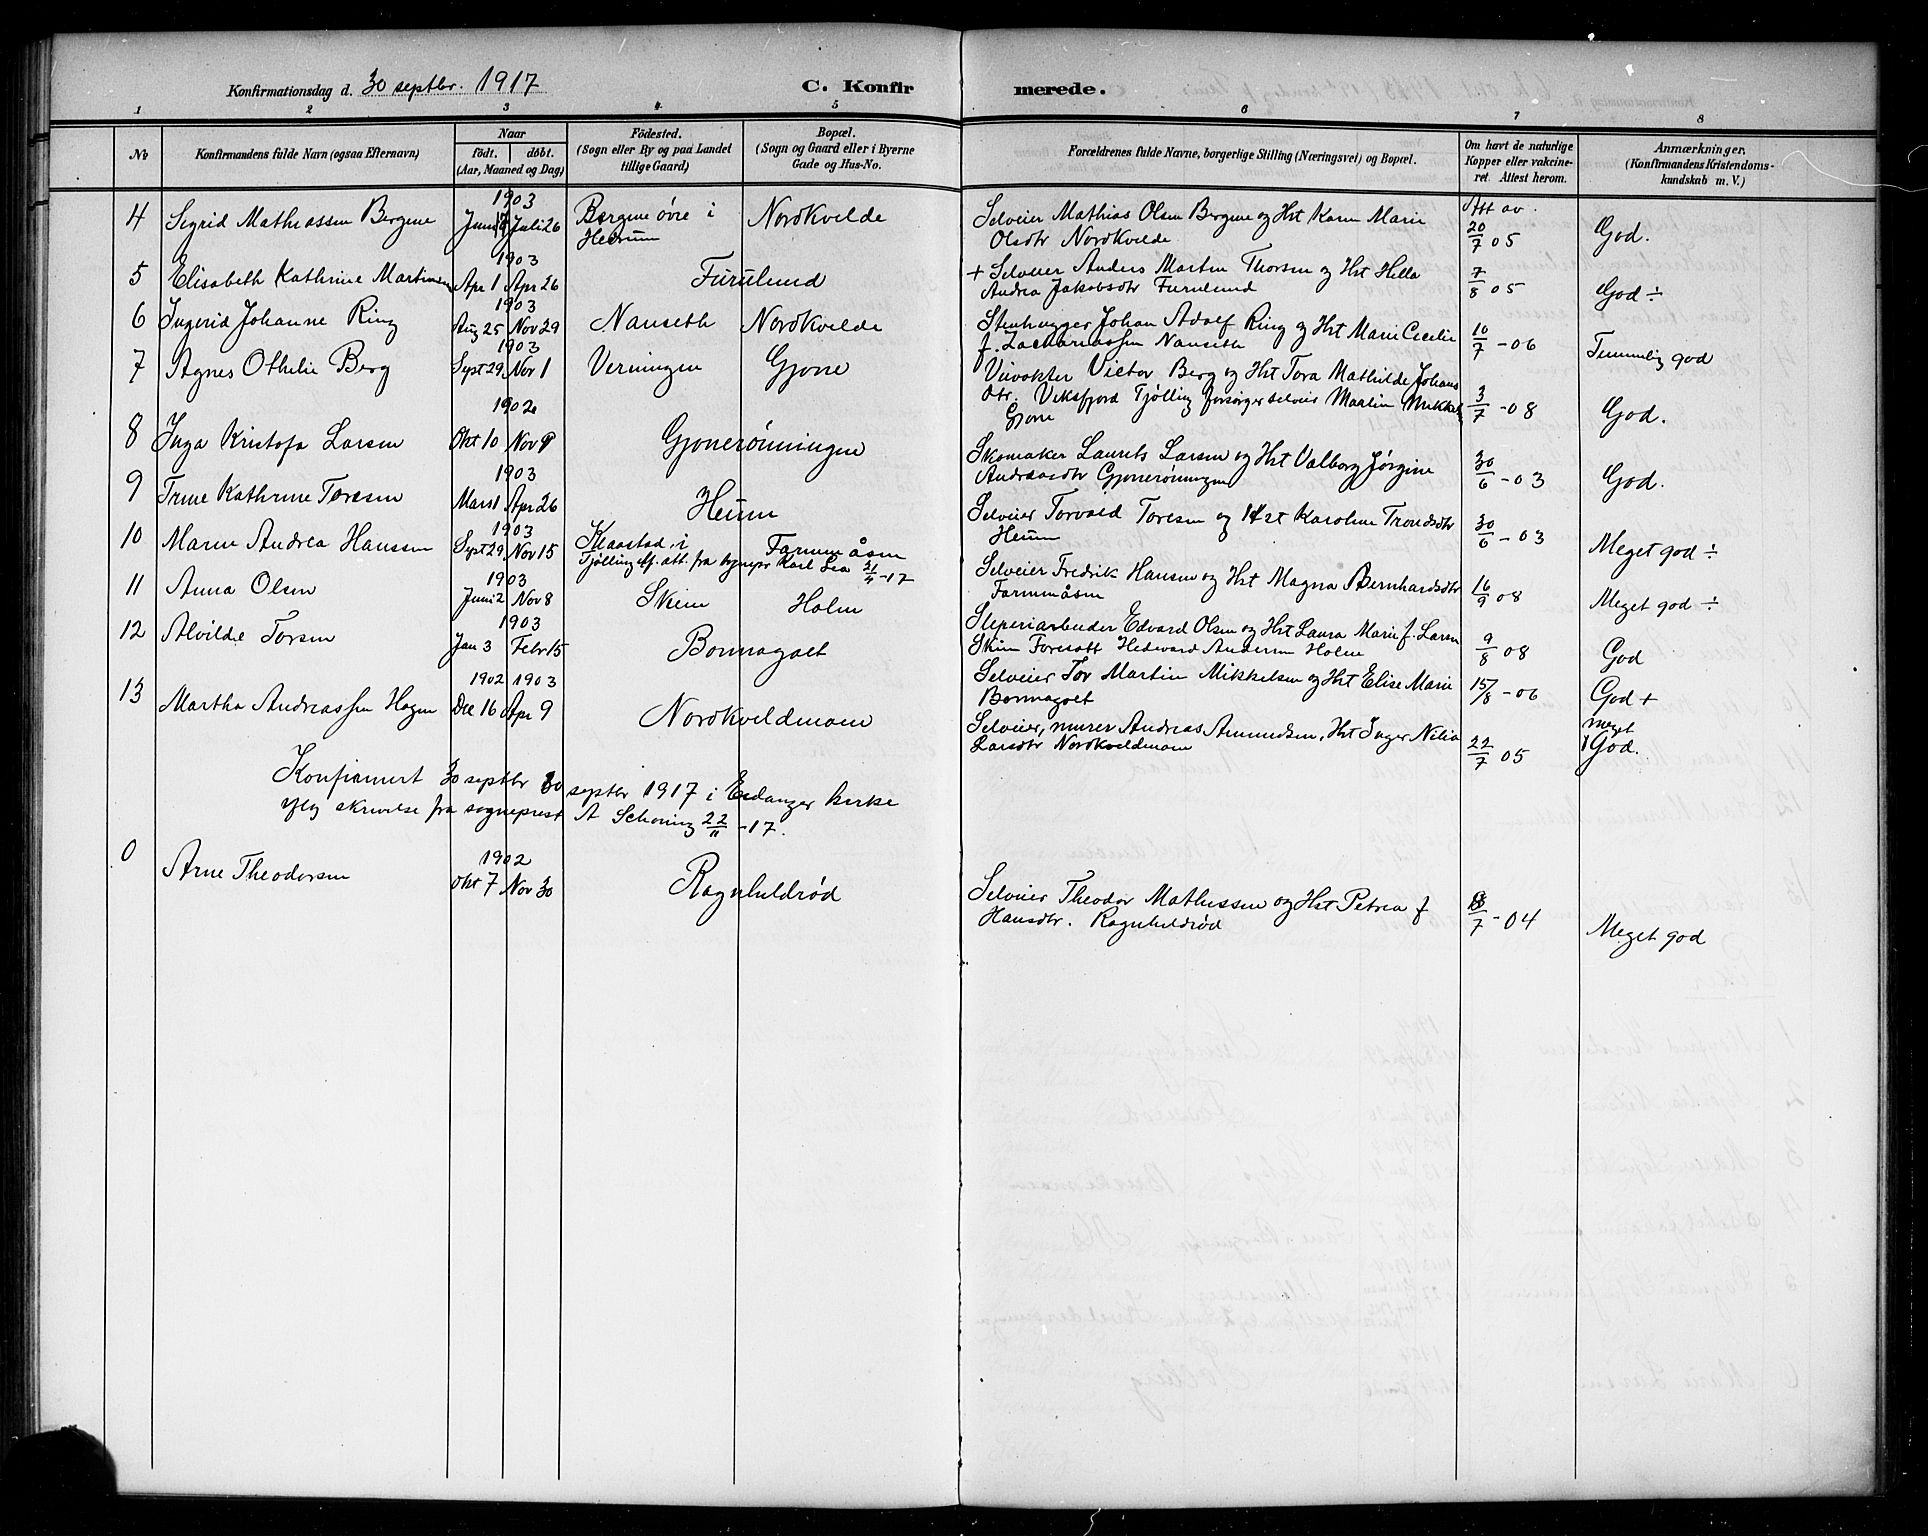 Konfirmationsdag d. 30 septbr. 1917 C. Konfir merede.
1 2 3 4 5 6 7 8
No Konfirmandens fulde Navn (ogsaa Efternavn) Naar født. døbt. (Aar, Maaned og Dag) Födested. (Sogn eller By og paa Landet tillige Gaard) Bopæl. (Sogn og Gaard eller i Byerne Gade og Hus-No. Forældrenes fulde Navne, borgerlige Stilling (Næringsvei) og Bopæl. Om havt de naturlige Kopper eller vakcineret. Attest herom. Anmærkninger, (Konfirmandens Kristendomskundskab m. V.)
1903 Att av
4 Sigrid Mathiassen Bergene Juni Juli 26 Bergene øvre i Nordkvelde Selveier Mathias Olsen Bergene og Hst Karen Marie 20/7 05 God.
Hedrum Olsdtr Nordkvelde
1903
5 Elisabeth Kathrine Martinsen Apr 1 Apr 26 Furulund + Selveier Anders Martin Thorsen og Hst Hella 7/8 05 God ÷
Andrea Jakobsdtr Furulund
1903
6 Ingerid Johanne Ring Aug 25 Nov 29 Nanseth Nordkvelde Stenhugger Johan Adolf Ring og Hst Marie Cecilie 10/7 - 06 Temmelig god
f. Zachariassen Nanseth
1903
7 Agnes Othelie Berg Sept 29 Nov 1 Verningen Gjone Victor Berg og Hst Tora Mathilde Johans 3/7 - 08 God.
dtr. Viksfjord Tjølling forsørger selveier Martin Mikkelsen
Gjone
1902
8 Inga Kristofa Larsen Okt 10 Nov 9 Gjonerønningen Skomaker Laurits Larsen og Hst Valborg Jørgine 30/6 - 03 God.
Andreasdtr Gjonerønningen
1903
9 Trine Kathrine Toresen Mars 1 Apr 26 Heum Selveier Torvald Toresen og Hst Karoline Trondsdtr 30/6 - 03 Meget god ÷
Heum
1903
10 Marie Andrea Hanssen Sept 29 Nov 15 Klaastad i Farmenåsen Selveier Fredrik Hansen og Hst Magna Bernhardsdtr 16/9 08 Meget god ÷
Tjølling att. fra sognepr Karl Lea 21/11 - 17 Farmenåsen
1903
11 Anna Olsen Juni 2 Nov 8 Skien Holm Sliperiarbeider Edvard Olsen og Hst Laura Marie f. Larsen 9/8 08 God
Skien Foresatt Hedevard Andersen Holm
1903
12 Alvilde Torsen Jan 3 Febr 15 Bonnagoet Selveier Tor Martin Mikkelsen og Hst Elise Marie 15/8 - 06 God +
Bonnagoet
1902 1903
13 Martha Andreassen Hagen Dec 16 Apr 9 Nordkveldmoen Selveier, murer Andreas Amundsen, Hst Inger Nilia 22/7 05 meget God.
Larsdtr Nordkveldmoen
Konfirmert 30 septbr 1917 i Eidanger kirke
ifølg skrivelse fra sogneprest A Schøning 22/11 - 17.
1902
0 Arne Theodorsen Okt 7 Nov 30 Ragnhildrød Selveier Theodor Mathissen og Hst Petrea f /7 - 04 Meget god
Hansdtr. Ragnhildrød